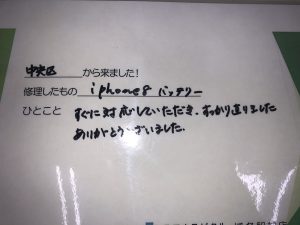 中央区 から来ました!
修理したもの iphone8 バッテリー
ひとこと すぐに対応していただき、すっかり直りました
ありがとうございました。